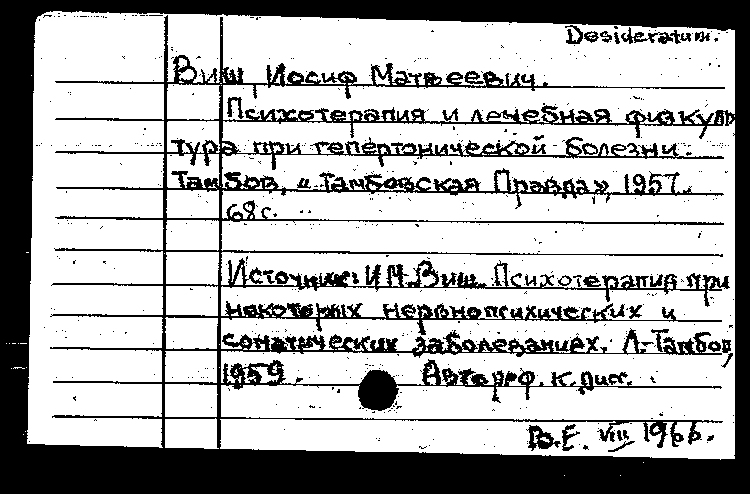 Desideratum.
Виш, Иосиф Матвеевич.
Психотерапия и лечебная физкуль
тура при гепертонической болезни.
Тамбов, „Тамбовская Правда", 1957.
68 с.
Источник: И.М. Виш. Психотерапия при
некоторых нервнопсихических и
соматических заболеваниях. Л.-Тамбов,
1959. Автореф. к. дисс.
В.Е. VIII 1966.